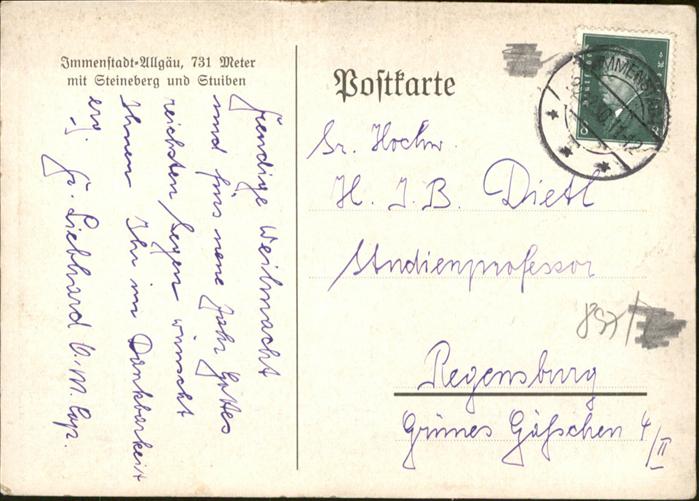 Immenstadt-Allgäu, 731 Meter
mit Steineberg und Stuiben
Freudige Weihnacht
und fürs neue Jahr Gottes
reichsten Segen wünscht
Ihnen Ihr in Dankbarkeit
erg. J. Liebhard
Postkarte
Sr. Hochw.
H. J. B. Dietl
Studienprofessor
Regensburg
Grünes Gäßchen 4/II
IMMENSTADT